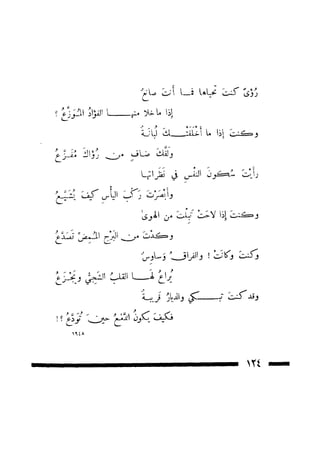 رُؤىً كنتَ تحياها فما أنتَ صانعُ
إذا ما خلا منها الفؤادُ الموزَّعُ ؟
وكنتَ إذا ما أخلفتكَ لُبانةٌ
ولفَّكَ ضافٍ من رؤاكَ مفزعُ
رأيتَ سكونَ النفسِ في نظراتها
وأبصرتَ ركبَ اليأسِ كيف يُشَيَّعُ
وكنتَ إذا لاحتْ تبلَّتَ من الهوى
وكدتَ من البَرْحِ الممضِّ تَصَدَّعُ
وكنتَ وكانتْ ! والفراقُ وساوسٌ
يُراعُ لها القلبُ الشجيُّ ويجزعُ
وقد كنتَ تبكي والديارُ قريبةٌ
فكيف يكونُ الدَّمْعُ حين تُوَدِّعُ ؟!
١٩٤٥
١٢٤